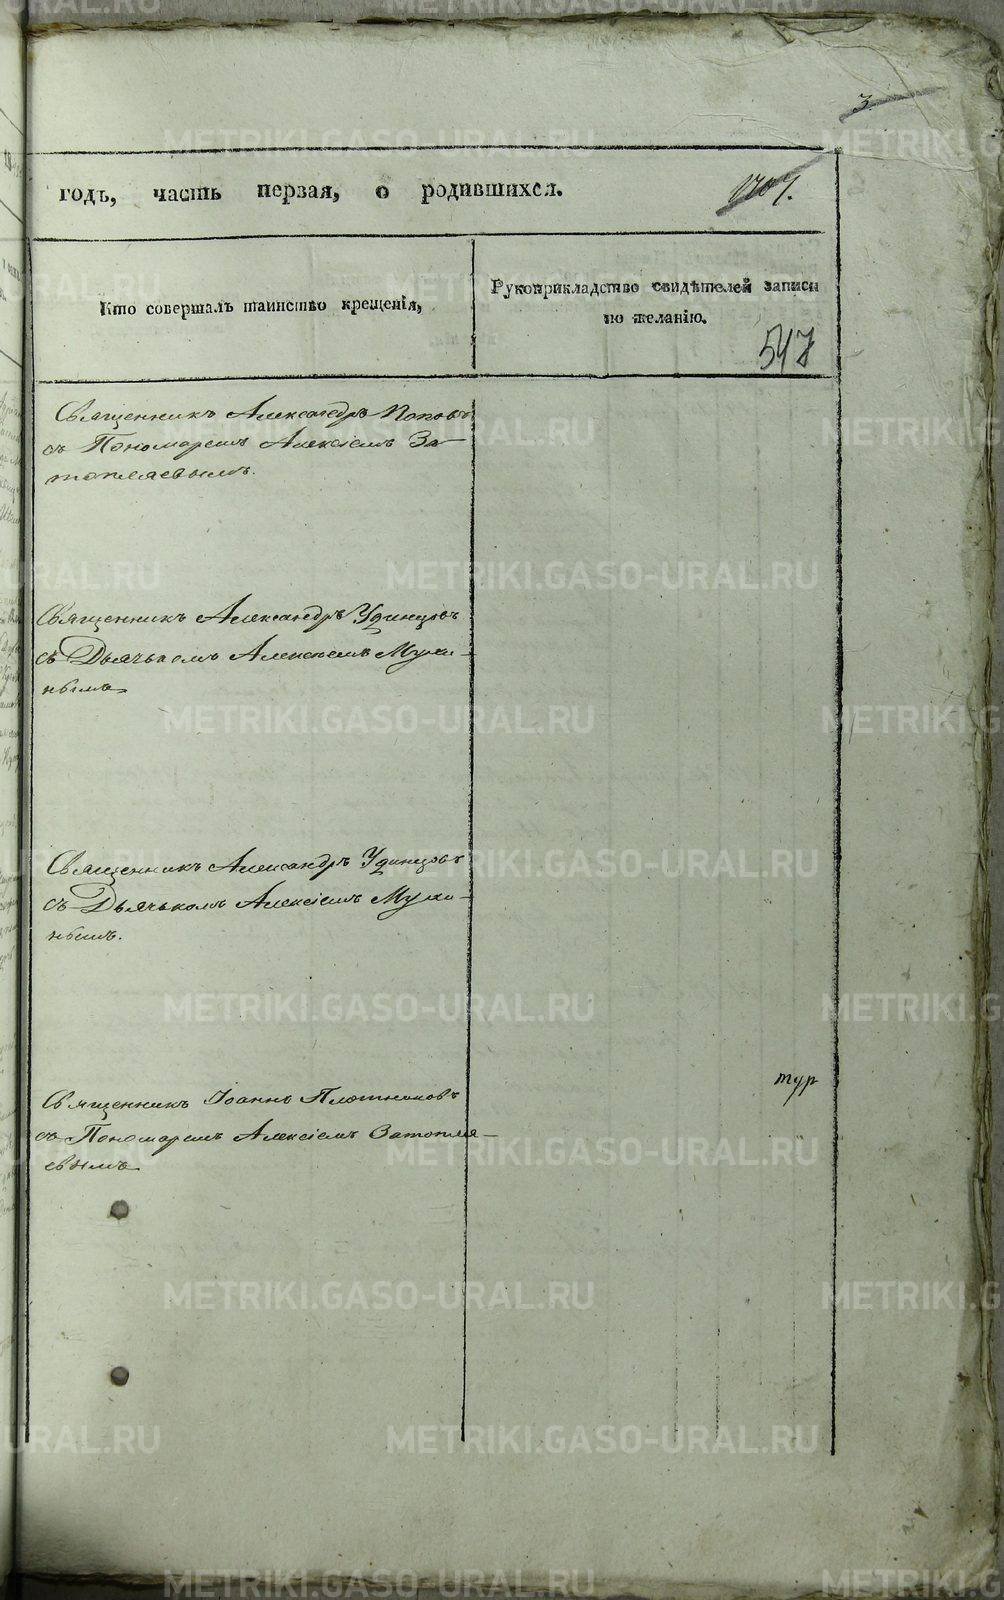 3
годъ, часть первая, о родившихся.
Кто совершалъ таинство крещенія,
Рукоприкладство свидѣтелей записи
по желанію.
547
Священникъ Александръ Поповъ
съ Пономаремъ Алексіемъ За-
топляевымъ.
Священникъ Александръ Удинцовъ
съ Дьячькомъ Алексіемъ Мухи-
нымъ
Священникъ Александръ Удинцовъ
съ Дьячькомъ Алексіемъ Мухи-
нымъ.
тур
Священникъ Іоаннъ Плотниковъ
съ Пономаремъ Алексіемъ Затопля-
евымъ
METRIKI.GASO-URAL.RU